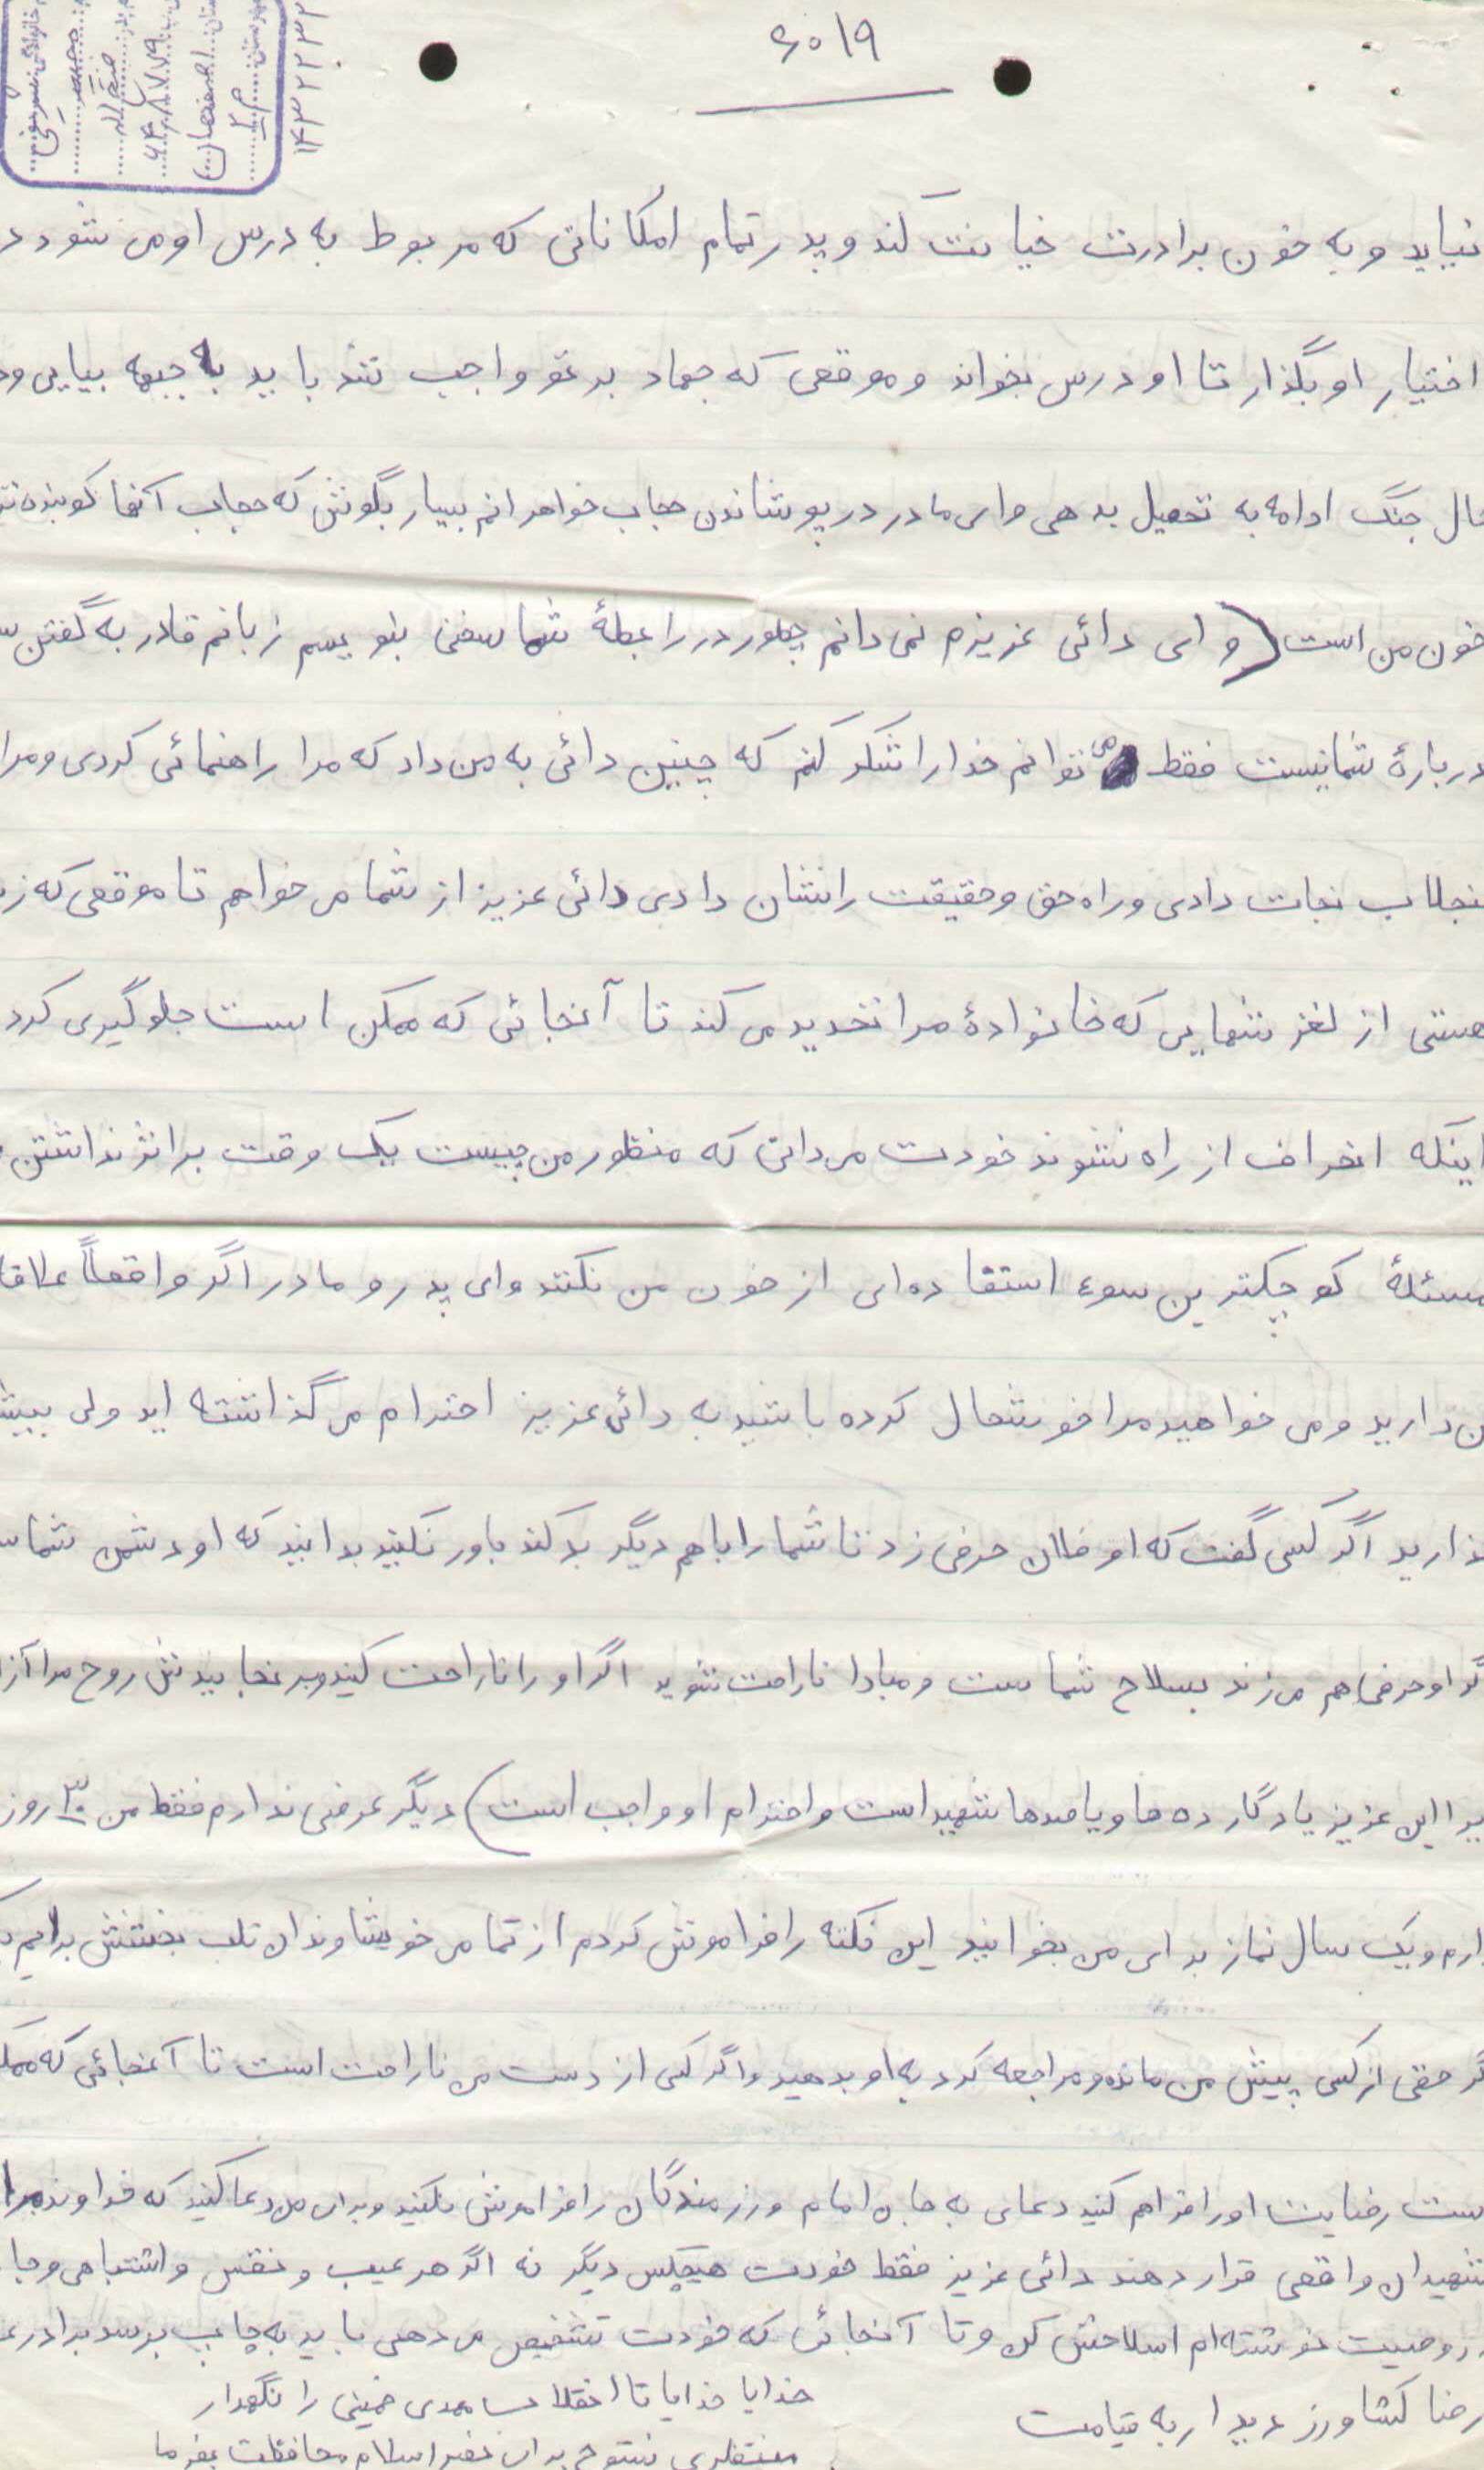 6019
۱۴۳۲۲۳۲
نیاید و به خون برادرت خیانت کند و پدر تمام امکاناتی که مربوط به درس او می شود د
اختیار او بگذار تا او درس بخواند و موقعی که جهاد بر تو واجب شد باید به جبهه بیایی و د
حال جنگ ادامه به تحصیل بدهی و ای مادر در پوشاندن حجاب خواهرانم بسیار بگوش که حجاب آنها کوبنده تر
خون من است (و ای دائی عزیزم نمی دانم چطور در رابطهٔ شما سخن بنویسم زبانم قادر به گفتن س
دربارهٔ شما نیست فقط می توانم خدا را شکر کنم که چنین دائی به من داد که مرا راهنمائی کردی و مرا
منجلاب نجات دادی و راه حق و حقیقت را نشان دادی دائی عزیز از شما می خواهم تا موقعی که زن
هستی از لغزشهایی که خانوادهٔ مرا تهدید می کند تا آنجائی که ممکن است جلوگیری کرد
اینکه انحراف از راه نشوند خودت می دانی که منظور من چیست یک وقت بر اثر نداشتن
مسئلهٔ کوچکترین سوء استفاده ای از خون من نکنند و ای پدر و مادر اگر واقعاً علاقه
من دارید و می خواهید مرا خوشحال کرده باشید به دائی عزیز احترام می گذاشته اید ولی بیشت
گذارید اگر کسی گفت که او فلان حرفی زد تا شما را با هم دیگر بد کند باور نکنید بدانید که او دشمن شماس
اگر او حرفی هم می زند بسلاح شماست و مبادا ناراحت شوید اگر او را ناراحت کنید و برنجانیدش روح مرا آزا
زیرا این عزیز یادگار ده ها و یا صدها شهید است و احترام او واجب است) دیگر عرضی ندارم فقط من ۳۰ روز
دارم و یک سال نماز برای من بخوانید این نکته را فراموش کردم از تمامی خویشاوندان طلب بخشش برایم
اگر حقی از کسی پیش من مانده و مراجعه کرد به او بدهید و اگر کسی از دست من ناراحت است تا آنجائی که ممک
است رضایت او را فراهم کنید دعای به جان امام و رزمندگان را فراموش نکنید و برای من دعا کنید که خداوند مرا
شهیدان واقعی قرار دهند دائی عزیز فقط خودت هیچکس دیگر نه اگر هر عیب و نقس و اشتباهی و جا
در وصیت نوشته ام اسلاحش کن و تا آنجائی که خودت تشخیص می دهی باید به چاپ برسد برادرت
رضا کشاورز دیدار به قیامت
خدایا خدایا تا انقلاب مهدی خمینی را نگهدار
منتظری نستوه برای فخر اسلام محافظت بفرما